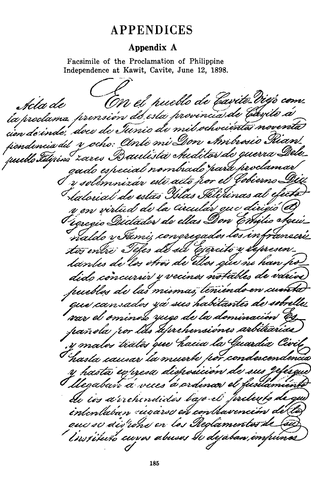 APPENDICES
Appendix A
Facsimile of the Proclamation of Philippine
Independence at Kawit, Cavite, June 12, 1898.
Acta de
la proclama
ción de inde
pendencia del
pueblo Filipino
En el pueblo de Cavite-Viejo com-
prensión de esta provincia de Cavite á
doce de Junio de mil ochocientos noventa
y ocho: Ante mi Don Ambrosio Rian
zares Bautista Auditor de guerra Dele
gado especial nombrado para proclamar
y solemnizar este acto por el Gobierno Dic
tatorial de estas Islas Filipinas al efecto
y en virtud de la circular que dirigió el
Egregio Dictador de ellas Don Emilio Agui
naldo y Famy, congregados los infrascri
tos entre Jefes de su Ejército y represen
tantes de los otros de ellos que no han po
dido concurrir y vecinos notables de varios
pueblos de las mismas, teniendo en cuenta
que cansados ya sus habitantes de sobelle
var el ominoso yugo de la dominación Es
pañola por las aprehensiones arbitrarias
y malos tratos que hacia la Guardia Civil
hasta causar la muerte por condescendencia
y hasta expresa disposición de sus Jefes que
llegaban á veces á ordenar el fusilamiento
de los aprehendidos bajo el pretexto de que
intentaban fugarse en contravención de lo
que se dispone en los Reglamentos de su
Instituto cuyos abusos se dejaban impunes
185